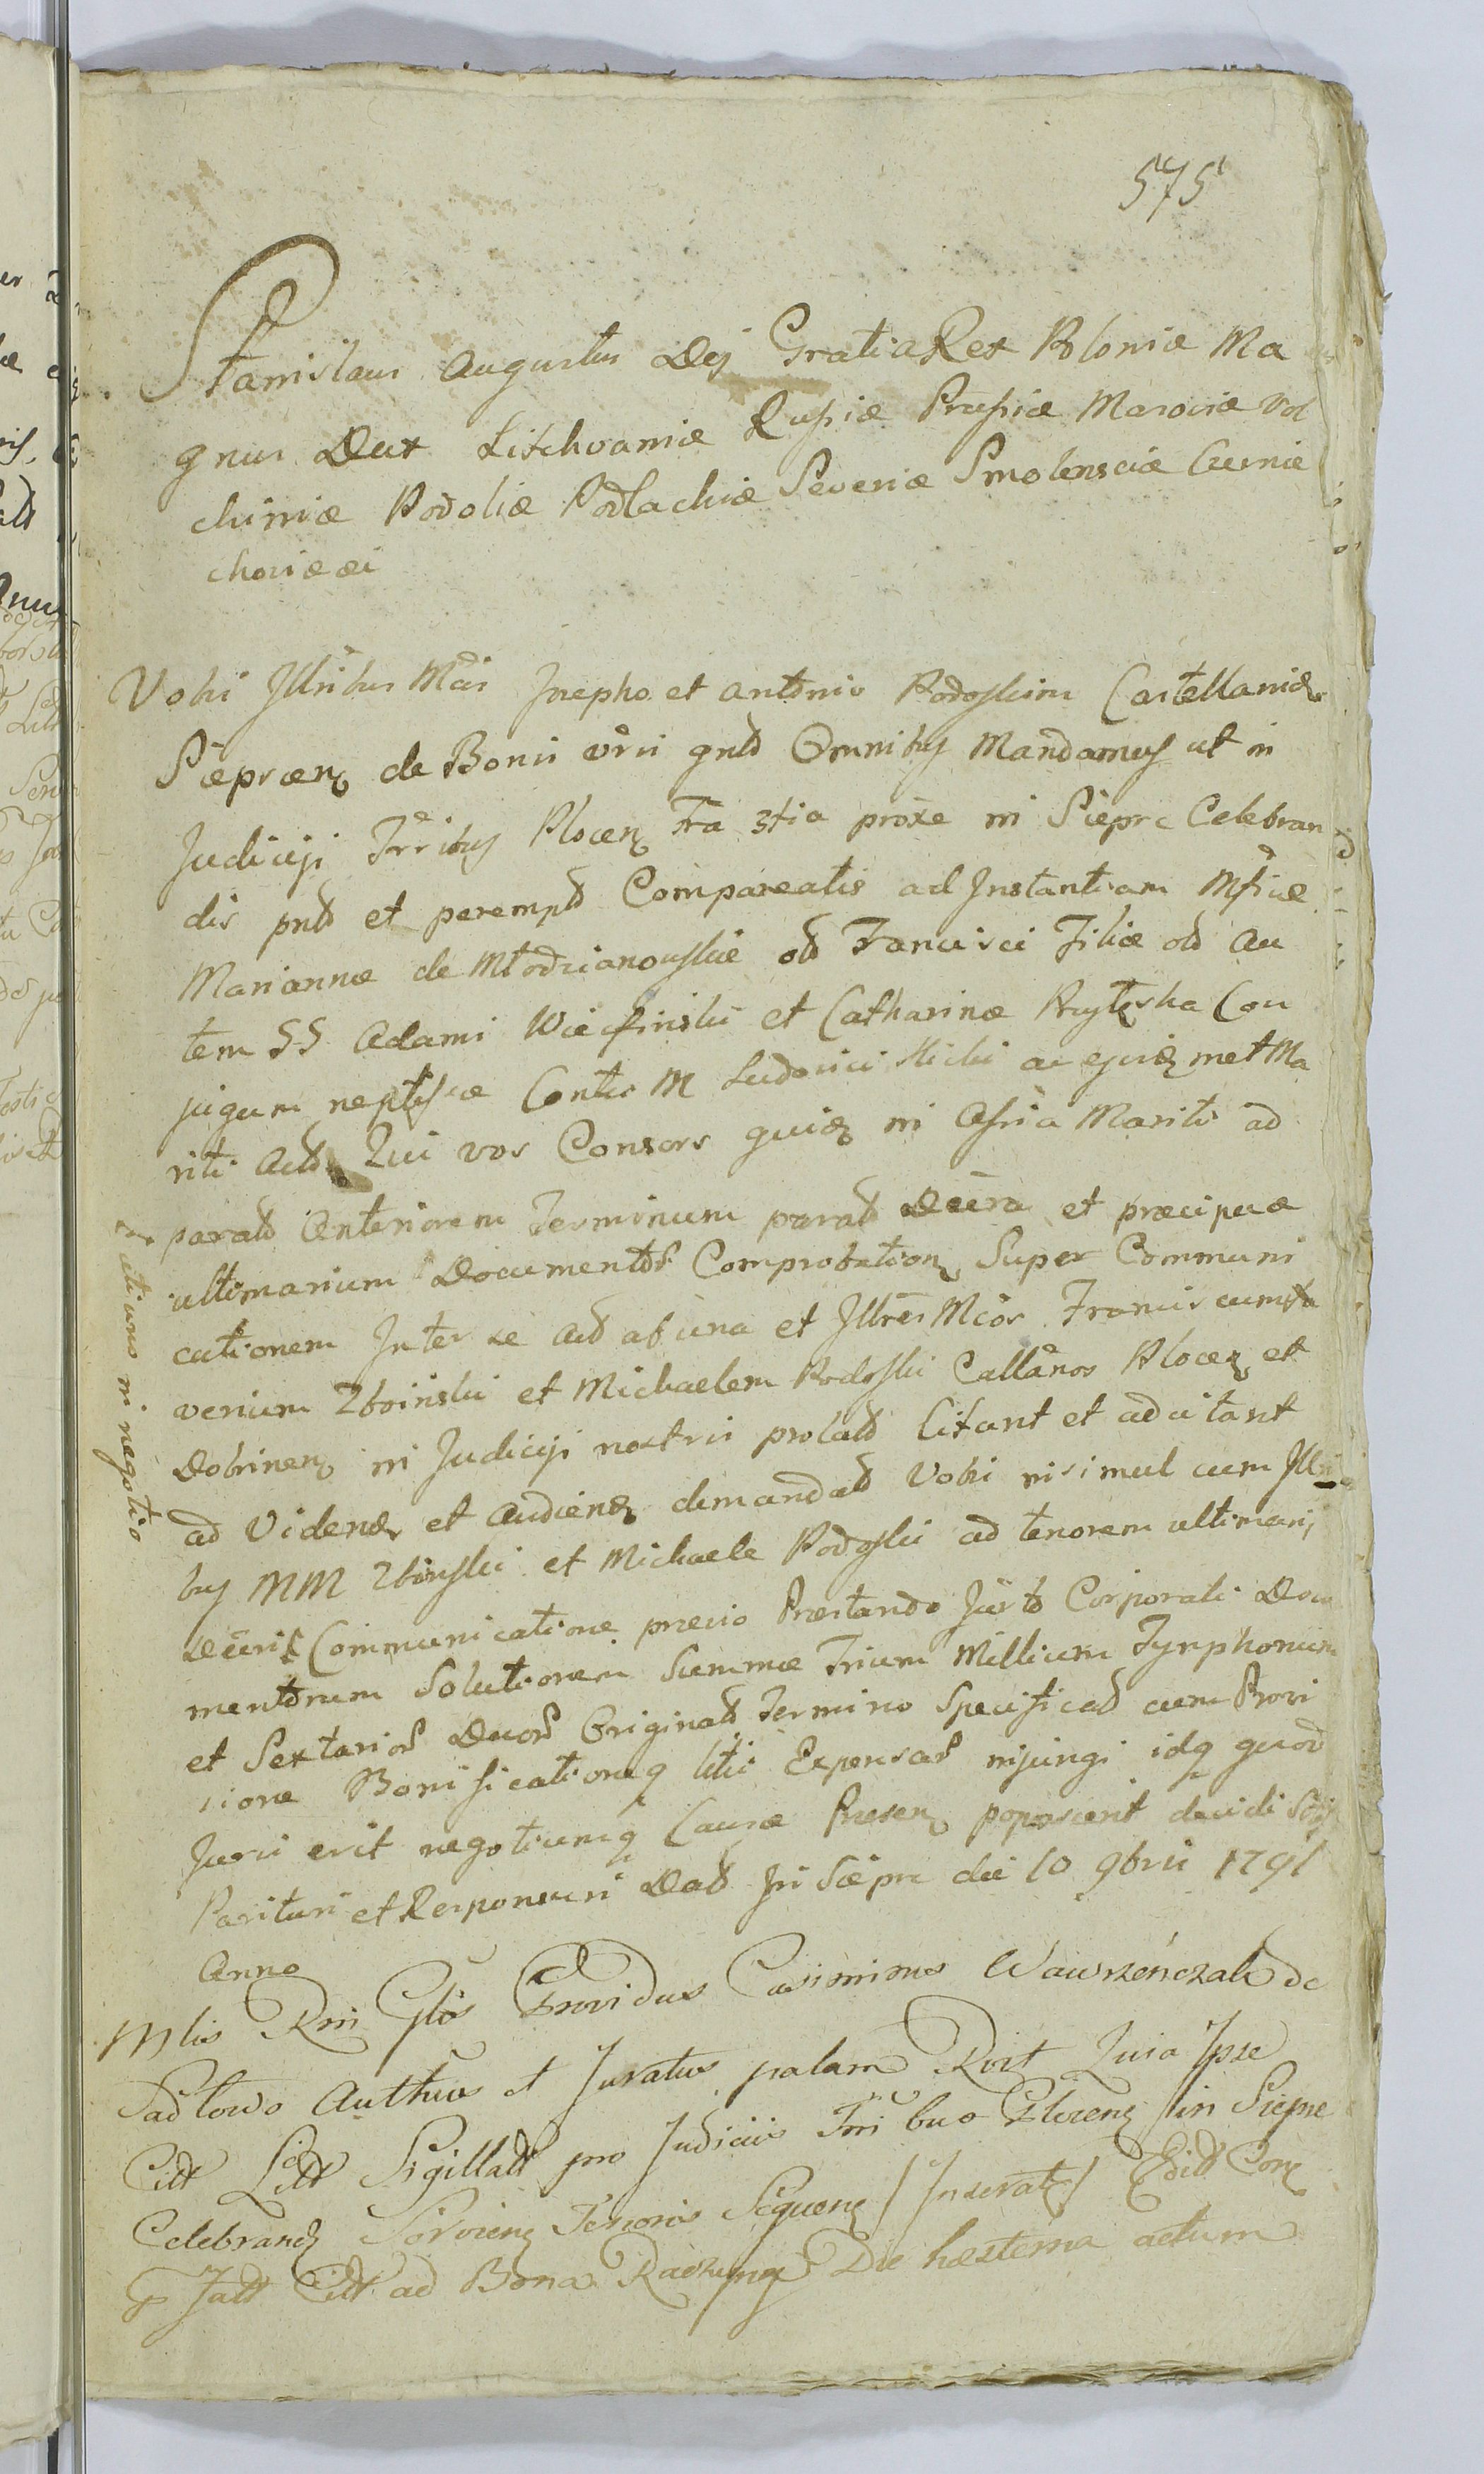 575
Stanislaus Augustus Dej Gratia Rex Poloniæ Ma
gnus Dux Lithvaniæ Rusiæ Prusiæ Masoviæ Vol
chiniæ Podoliæ Podlachiæ Severiæ Smolensciæ Czernie
choviæ
Vobis Jllribus Mcis Josepho et Antonio Podoskim Castellanid
Sieprcen de Bonis vris gnlr Omnibus Mandamus ut in
Judicijs Trribus Plocen Fra 3tia proxe in Sieprc Celebran
dis pnlr et perempt Compareatis ad Jnstantiam Mficæ
Mariannæ de Młodzianowskie olt Francisci Filiæ olt au
tem SS Adami et Catharinæ Con
jugum neptisque Contis M Ludovici ac ejusd met Ma
riti Act Qui vos Consors quid in Assia Mariti ad
parat Anteriorem Terminum parat Decra et præcipuæ
ultimarium Documentor Comprobation Super Communi
cationem Jnter se act ab una et Jllres Mcos Franciscum Xa
verium Zboinski et Michaelem Podoski Callanos Plocen et
Dobrinen in Judicijs nostris prolat Citant et adcitant
ad Vidend et Audiend demandat Vobis insimul cum Jllri
bus MM Zboinski et Michaele Podoski ad tenorem ultimarij
Decreti Communicatione prævio Præstando Jurto Corporali Docu
mentorum Solutionem Summæ Trium Millium Tynphonum
et Sextarior Duor Originat Termino Specificat cum Provi
sione Bonificationeq litis Expensar injungi idq quod
Juris erit negotiumq Causæ Presen poposcerit decidi Sitis
Parituri et Responsuri Dat in Sieprc die 10 9bris 1791
Anno
ctiuno in negotio
Mlis Rni Glis Providus Casimirus Wawrzeńczak de
Sadłowo Authus et Juratus palam Rvit Quia Jpse
Citt Litt Sigillatt pro Judiciis Tri bus Plocen in Sieprc
Celebrand Servien Tenoris Sequen / Jnserat / Edidt Cong
Jatt Citt ad Bona Raczyny Die hesterna actum